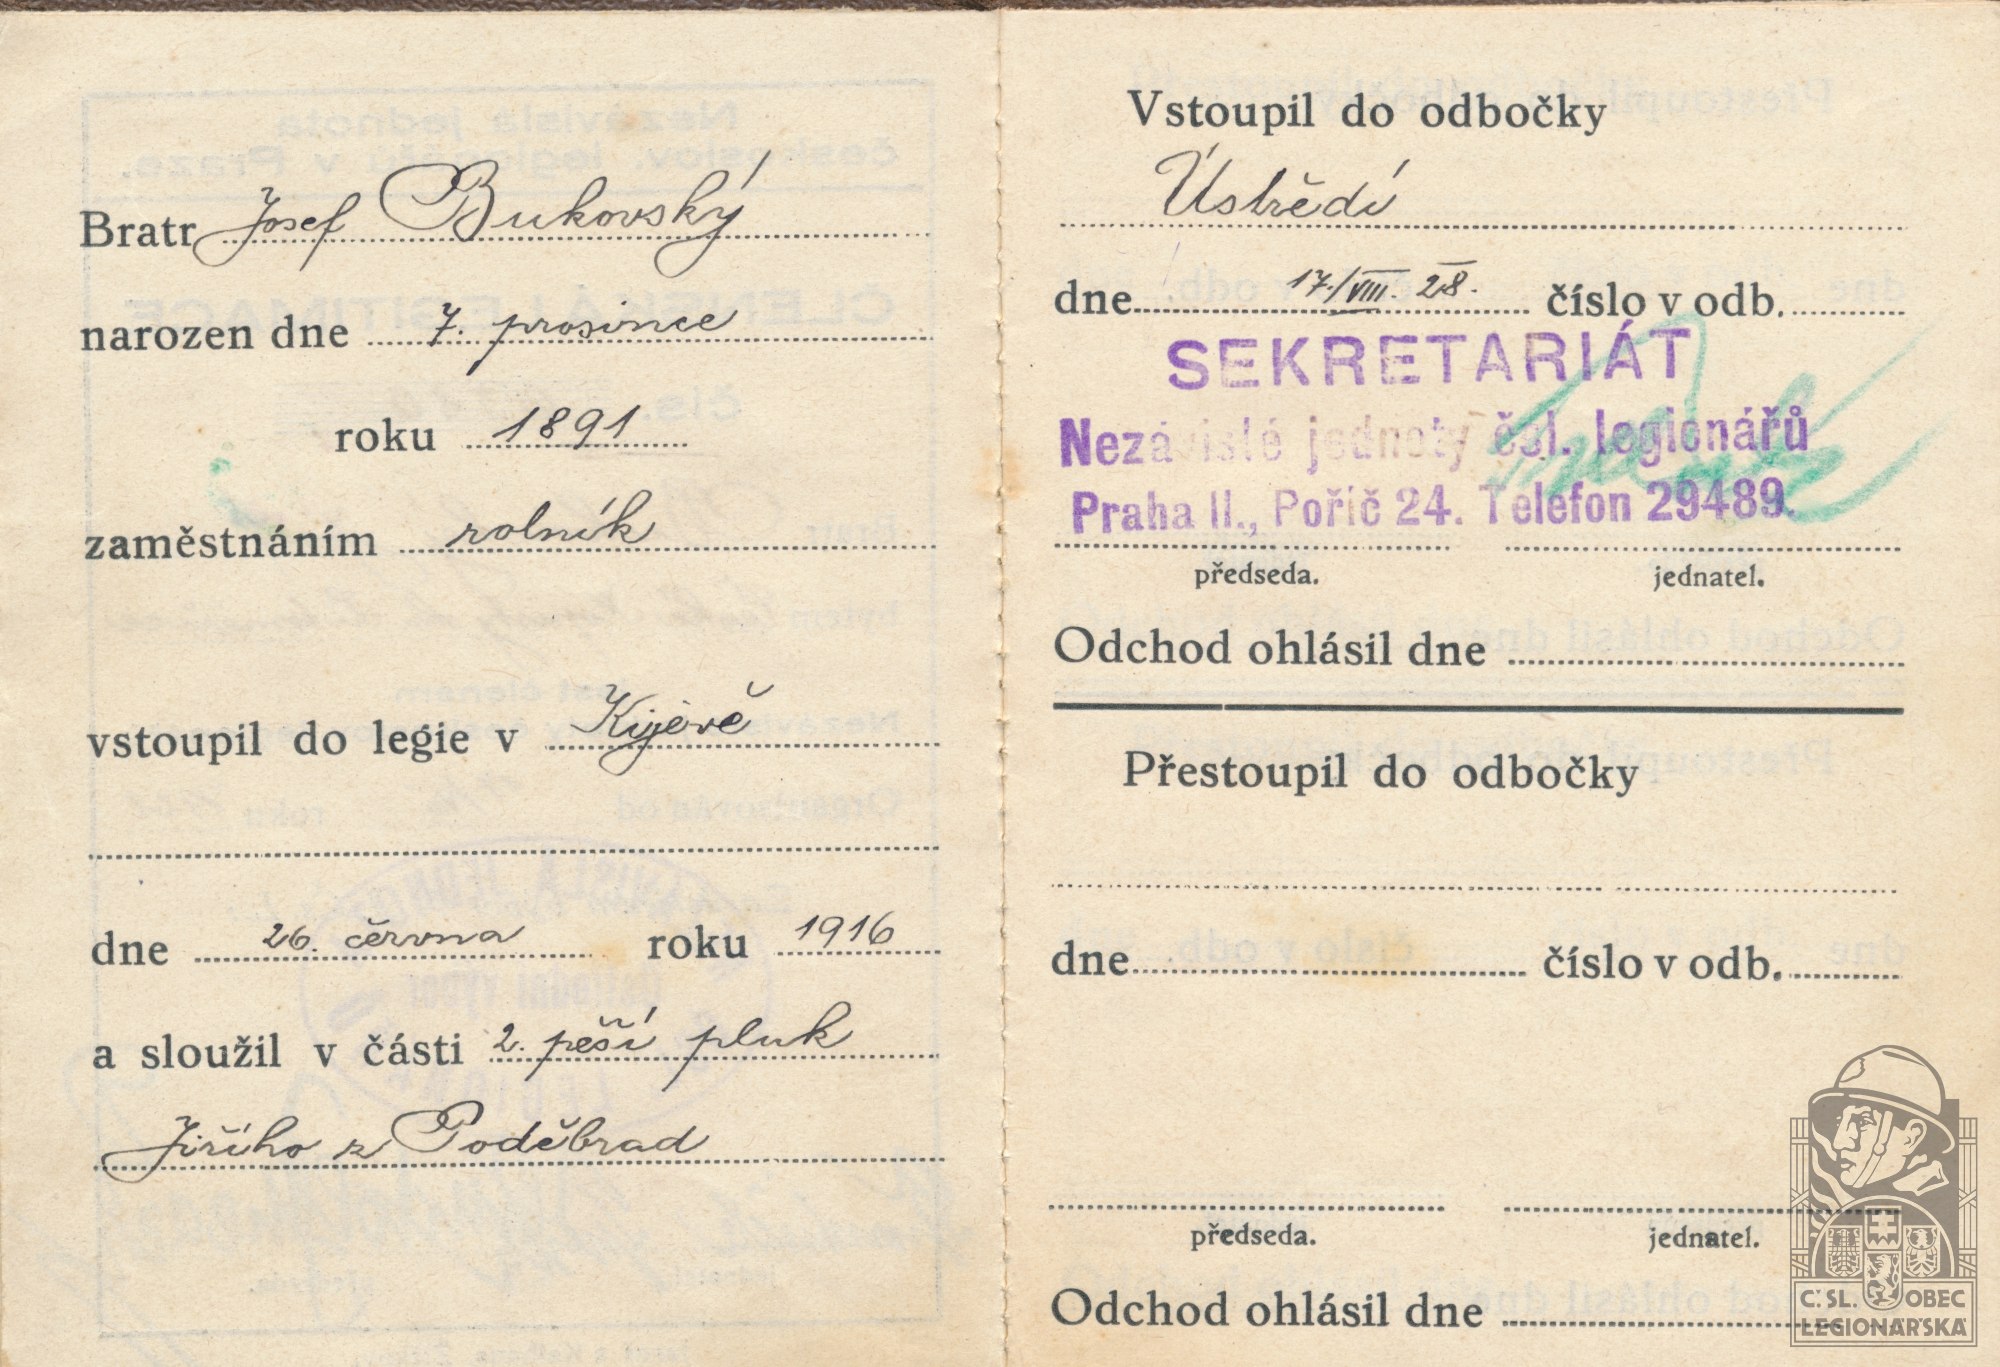 Bratr Josef Bukovský
narozen dne 7. prosince
roku 1891
zaměstnáním rolník
vstoupil do legie v Kijevě
dne 26. června roku 1916
a sloužil v části 2. pěší pluk
Jiřího z Poděbrad
Vstoupil do odbočky
Ústředí
dne 17./VIII. 28. číslo v odb.
SEKRETARIÁT
Nezávislé jednoty čsl. legionářů
Praha II., Poříč 24. Telefon 29489.
předseda. jednatel.
Odchod ohlásil dne
Přestoupil do odbočky
dne číslo v odb.
předseda. jednatel.
Odchod ohlásil dne
Č. SL. OBEC
LEGIONÁŘSKÁ